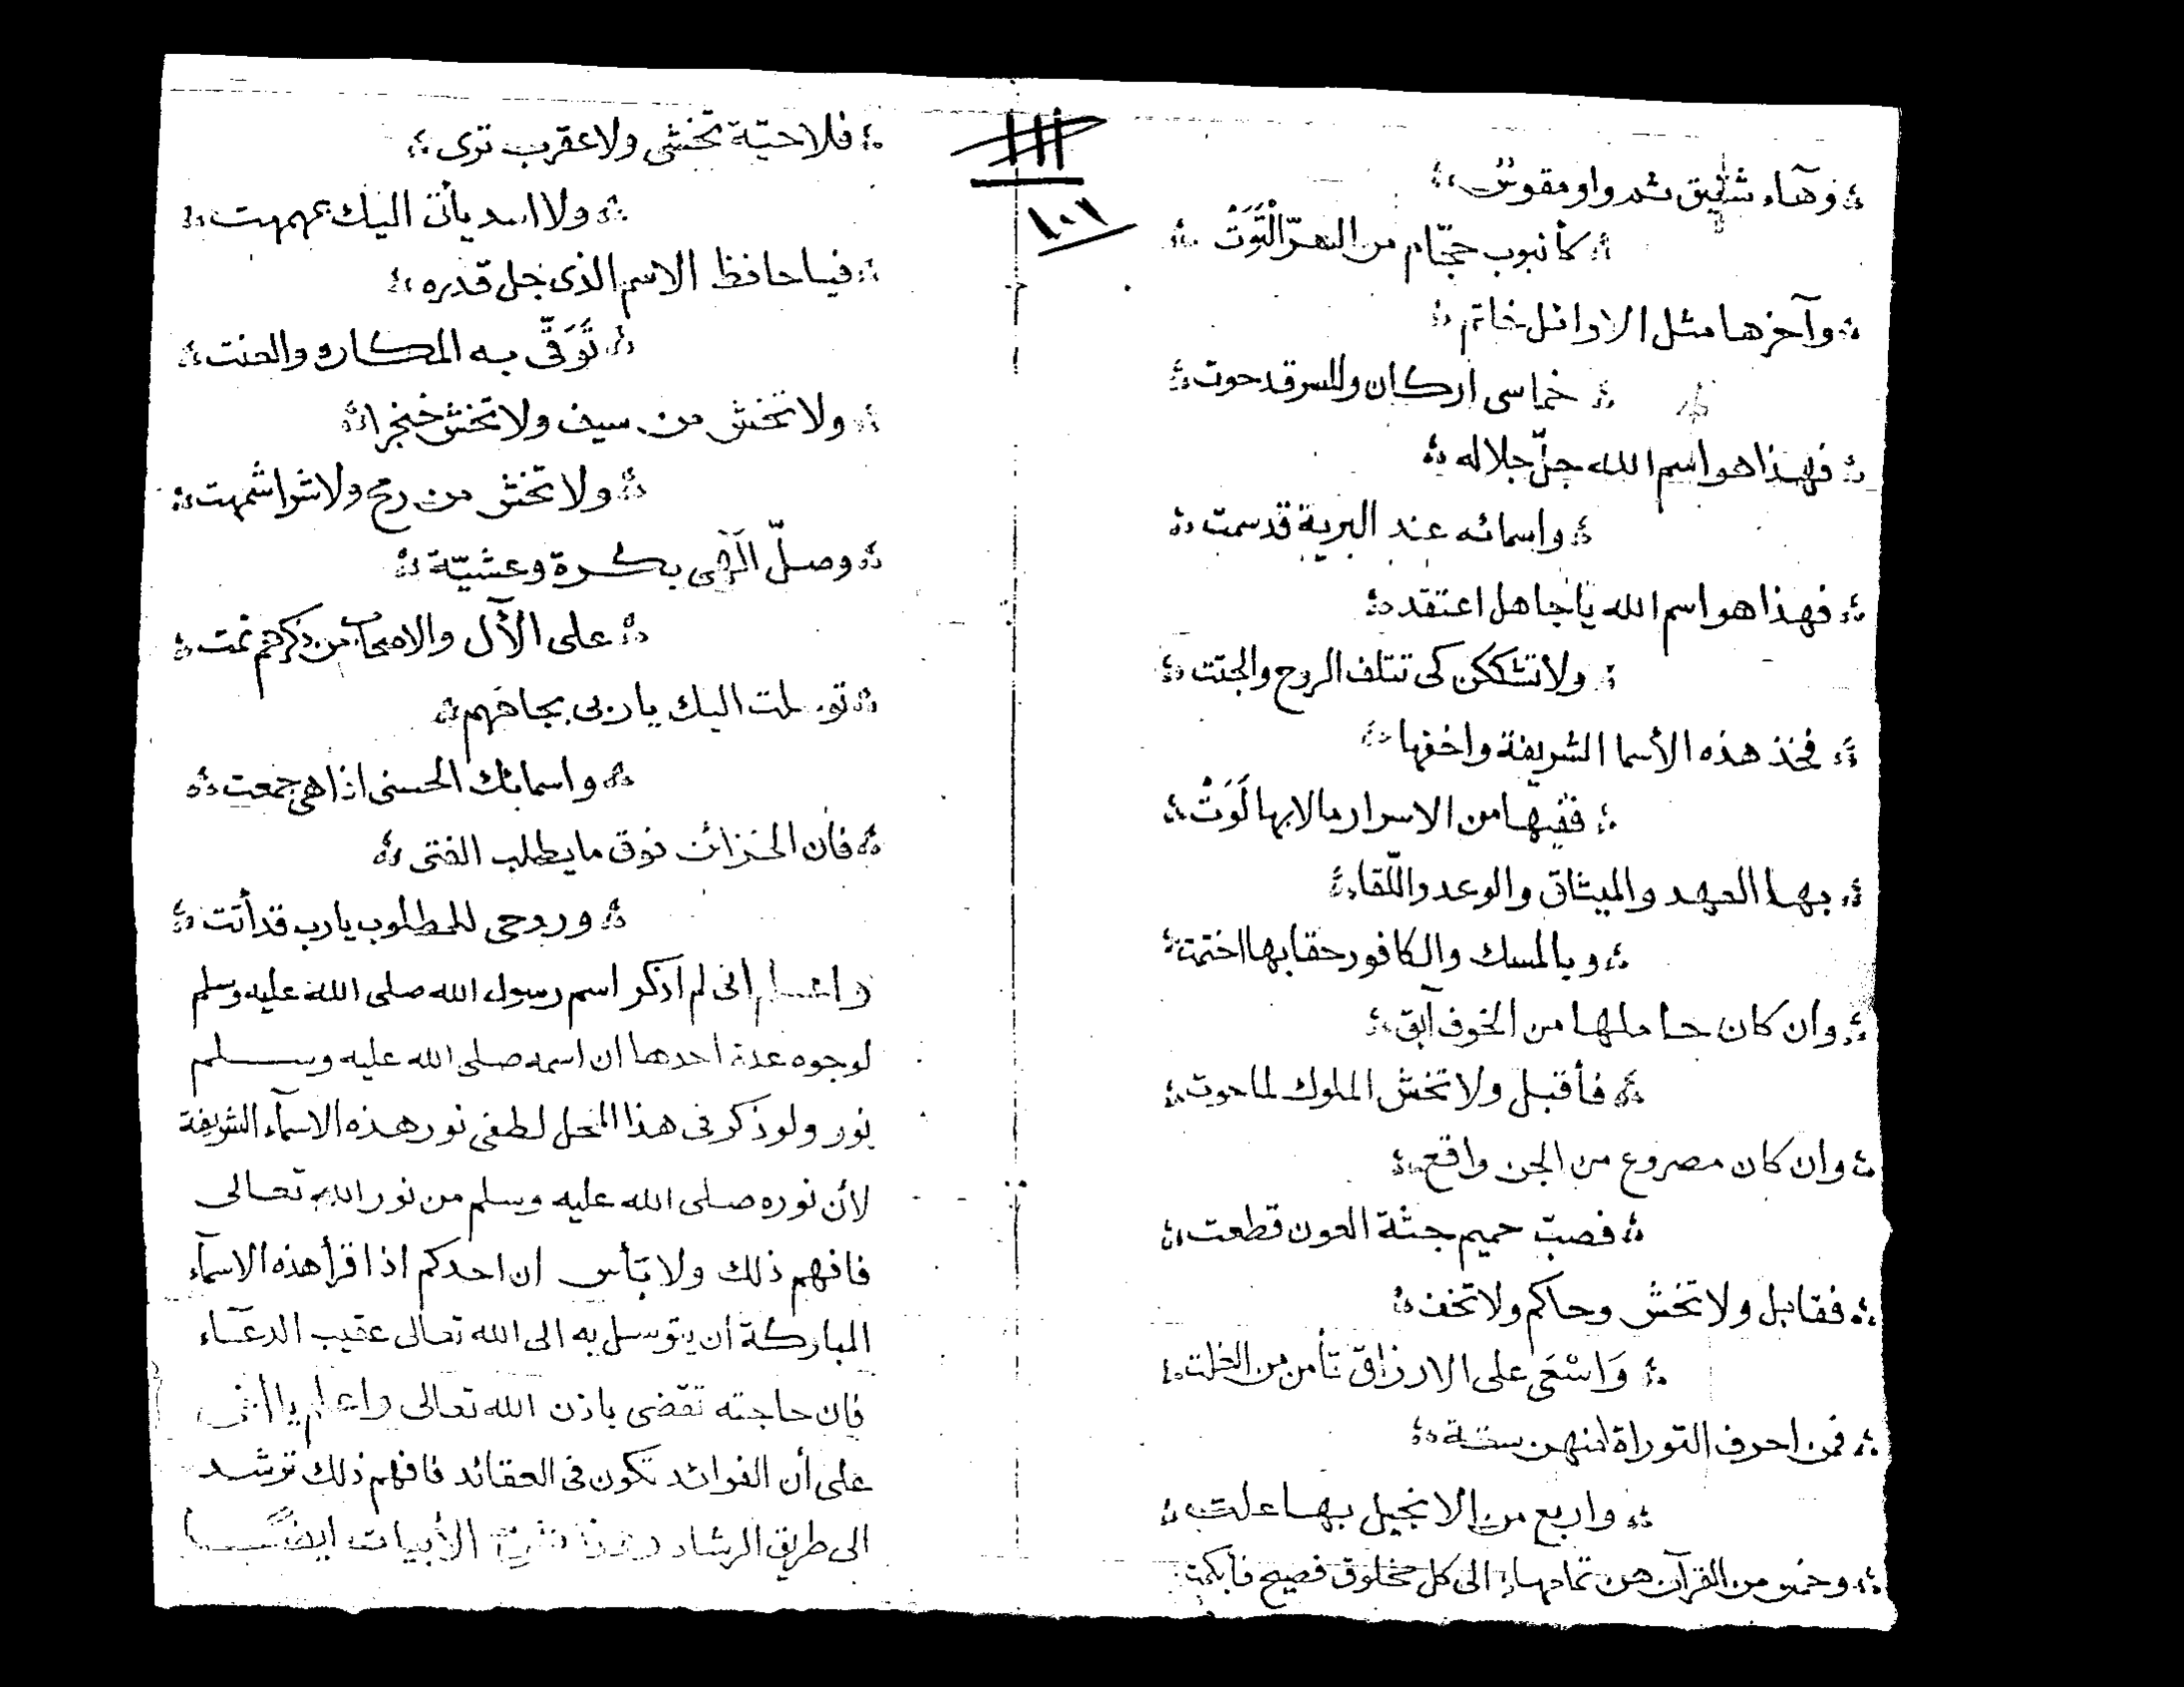 وهآء شقيق ثم واو مقوس
كأنبوب حجّام من السرّ الْتَوَتْ
وآخرها مثل الاوائل خاتم
خماسى اركان وللسر قد حوت
فهذا هو اسم الله جلّ جلاله
واسمائه عند البرية قد سمت
فهذا هو اسم الله يا جاهل اعتقد
ولا تشككن كى تتلف الروح والجثت
فخذ هذه الأسما الشريفة واخفها
ففيها من الاسرار مالابها لَوَتْ
بها العهد والميثاق والوعد واللّقا
وبالمسك والكافور حقا بها اختمت
وان كان حاملها من الخوف آبق
فأقبل ولا تخش الملوك لما حوت
وان كان مصروع من الجن واقع
فصبّ حميم جثة العون قطعت
فقابل ولا تخش وحاكم ولا تخف
وَاسْعَى على الارزاق تأمن من الغلت
فمن احرف التوراة منهن ستة
واربع من الانجيل بها علت
وخمس من القرآن هن تمامها الى كل مخلوق فصيح فأبكمت
١٠١
فلا حيّة تخشى ولا عقرب ترى
ولا اسد يأتى اليك بهمهمت
فيا حافظ الاسم الذى جل قدره
تَوَقّى به المكاره والعنت
ولا تخش من سيف ولا تخش خنجرا
ولا تخش من رمح ولا شر اشمهت
وصلّ الٓهى بكرة وعشيّة
على الآل والاصحاب من ذكرهم نمت
توسلت اليك يا ربى بجاههم
واسمائك الحسنى اذا هى جمعت
فأن الخزائن فوق ما يطلب الفتى
وروحى للمطلوب يا رب قد أتت
واعلم انى لم اذكر اسم رسول الله صلى الله عليه وسلم
لوجوه عدة احدها ان اسمه صلى الله عليه وسلم
نور ولو ذكر فى هذا المحل لطفى نور هذه الاسمآء الشريفة
لأن نوره صلى الله عليه وسلم من نور الله تعالى
فافهم ذلك ولا بأس ان احدكم اذا قرأ هذه الاسمآء
المباركة أن يتوسل به الى الله تعالى عقيب الدعآء
فان حاجته تقضى باذن الله تعالى واعلم يا أخى
على أن الفوائد تكون فى العقائد فافهم ذلك ترشد
الى طريق الرشاد وهذا شرح الأبيات ايضًا